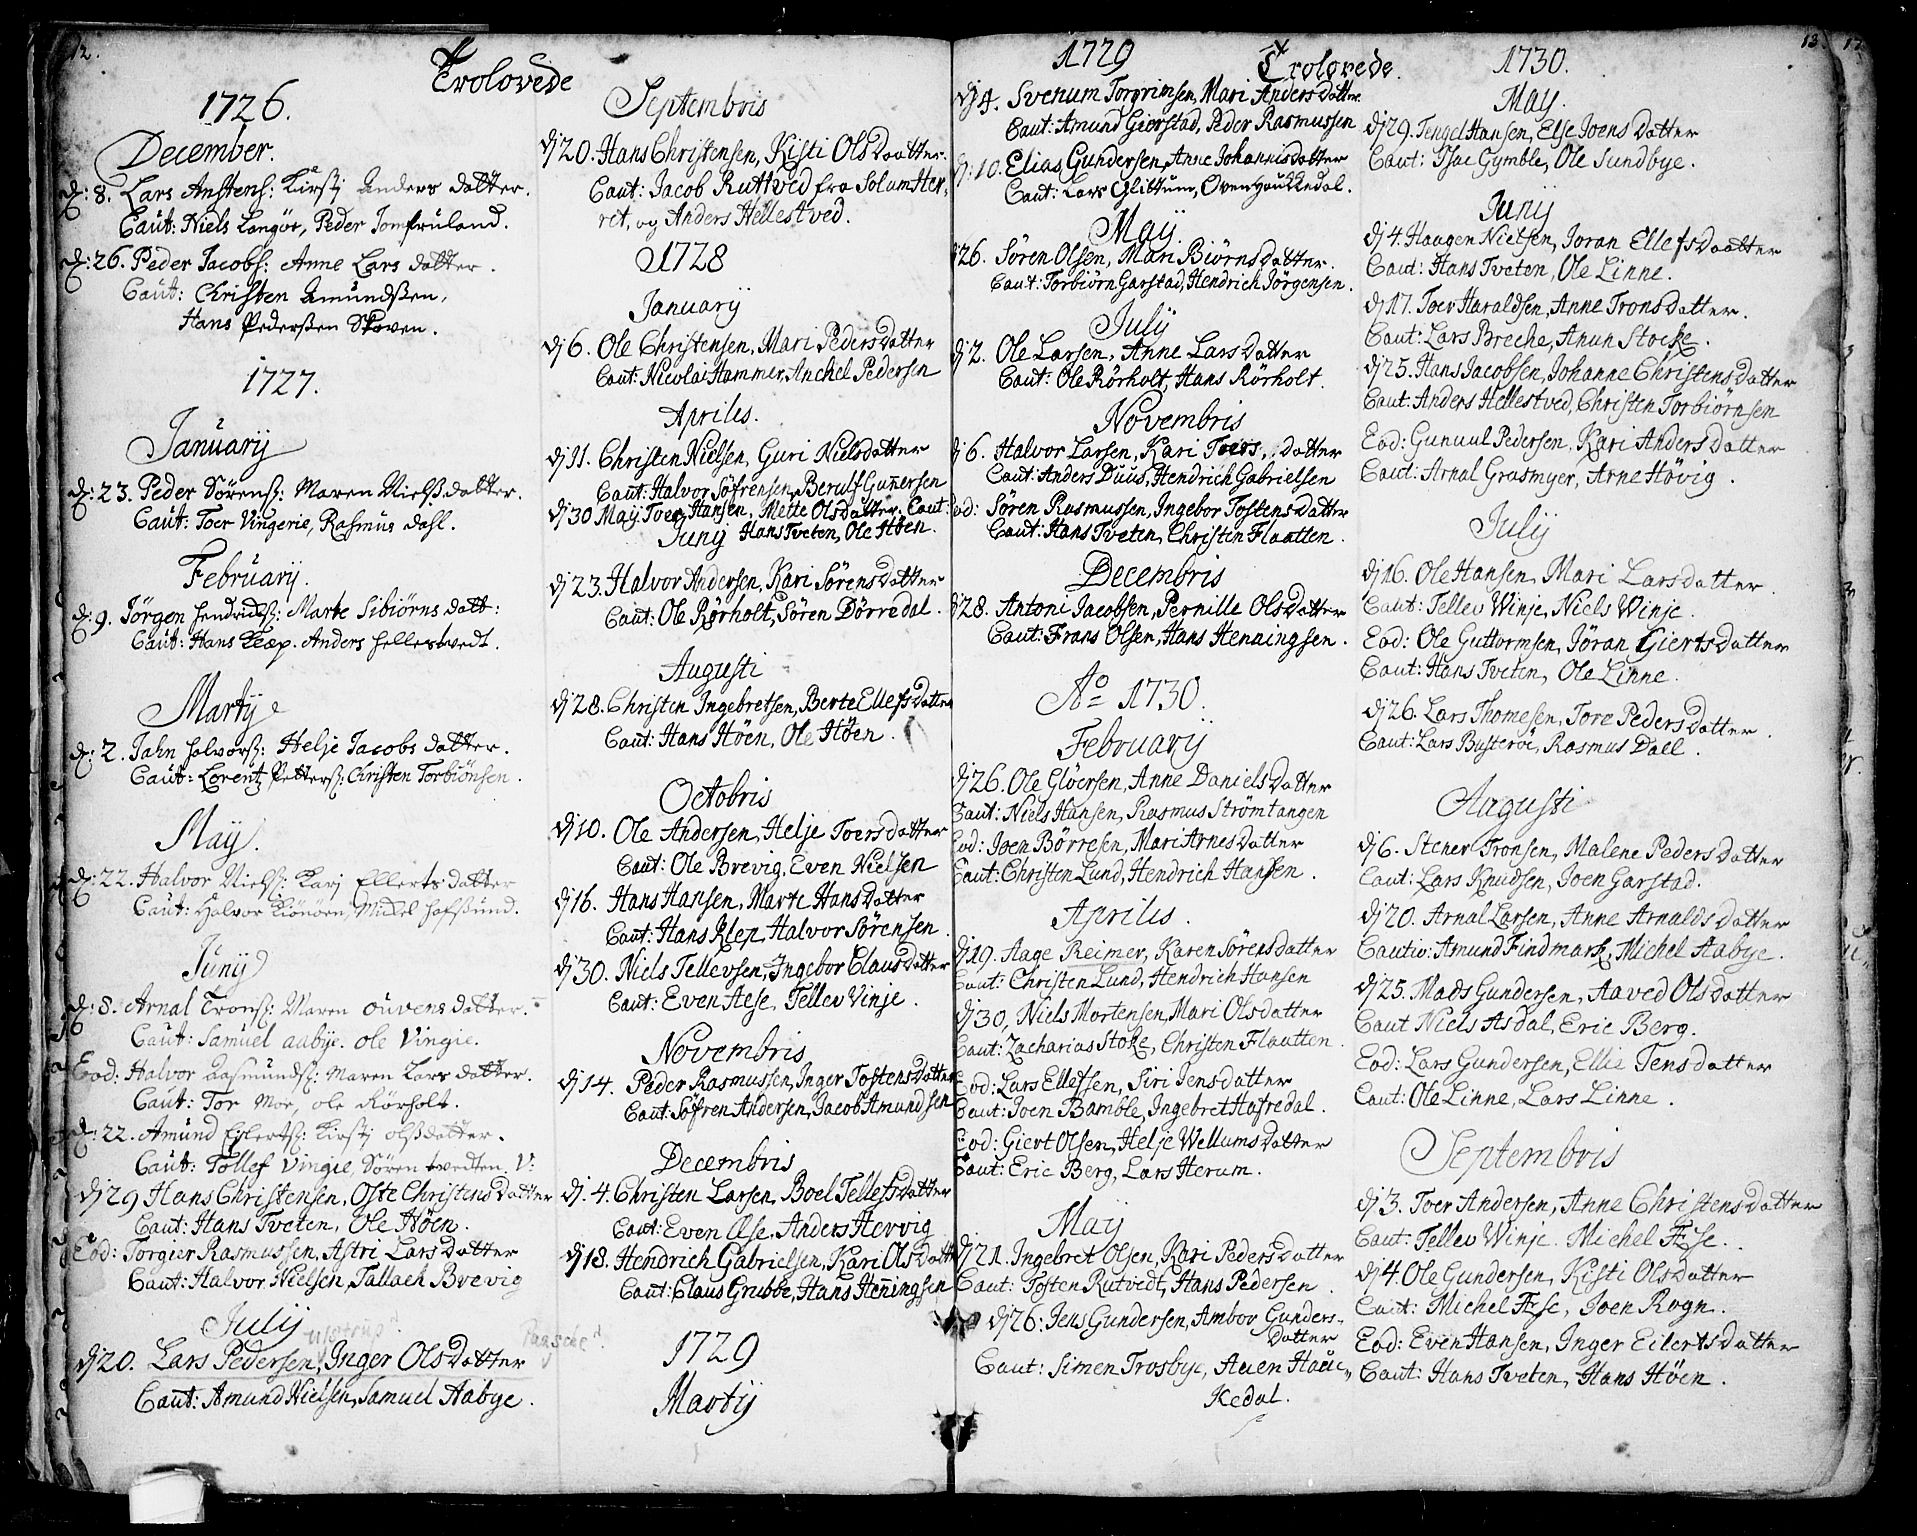 12.
Trolovede
1726.
December.
d: 8. Lars Anstens: Kirstj Anders datter.
Caut: Niels Langöe, Peder Jomfruland.
d: 26. Peder Jacobs: Anne Lars datter.
Caut: Christen Amundßen,
Hans Pederßen Skoven.
1727.
Januarij
d: 23. Peder Sörens: Maren Nielßdatter.
Caut: Toer Vingerie, Rasmus dahl.
Februarij.
d: 9. Jörgen Hendrichs: Marte Sibiörns datt:
Caut: Hans Klæp. Anders Hellestvedt.
Martij
d: 2. Jahn Halvors: Helje Jacobs datter.
Caut: Lorentz Petters: Christen Torbiönsen.
Maij.
d: 22. Halvor Niels: Karj Ellerts datter
Caut: Halvor Kiönöen, Mickel Hafsund.
Junij
d: 8. Arnal Trons: Maren Ouvens datter.
Caut: Samuel aabye. ole Vingie.
Eod: Halvor Aasmunds: Maren Lars datter.
Caut: Tor Moe, ole Rörholt.
d: 22. Amund Eylerts: Kirstj olßdatter.
Caut: Tollef Vingie, Sören tvedten. V:
dj 29 Hans Christensen, Oste Christens Datter
Caut: Hans Tveten, Ole Höen.
Eod: Torgier Rasmussen, Astri Lars Datter
Caut: Halvor Nielsen, Tallach Brevig
Julij
Ulstrup
Paasche
dj 20. Lars Pedersen, Inger Ols Datter
Caut: Amund Nielsen, Samuel Aabye.
Septembris
dj 20. Hans Christensen, Kisti Ols Daatter.
Caut: Jacob Ruttved fra Solum Her-
ret, og Anders Hellestved.
1728
Januarij
dj 6. Ole Christensen, Mari Peders Datter
Caut: Nicolai Hammer, Anchel Pedersen
Aprilis.
dj 11. Christen Nielsen, Guri Nielsdatter
Caut: Halvor Söfrensen, Berulf Gunnersen
dj 30 Maij Toer Hansen, Mette Olsdatter. Caut:
Junij Hans Tveten, Ole Höen.
dj 23. Halvor Andersen, Kari Sörens Datter
Caut: Ole Rörholt, Sören Dörredal.
Augusti
dj 28. Christen Ingebretsen, Berte Ellefs Datter
Caut: Hans Höen, Ole Höen.
Octobris
dj 10. Ole Andersen, Helje Toers datter
Caut: Ole Brevig, Even Nielsen
dj 16. Hans Hansen, Marte Hans Datter
Caut: Hans Klep, Halvor Sörensen.
dj 30. Niels Tellevsen, Ingebor Claus Datter
Caut: Even Aese, Tellev Vinje.
Novembris
dj 14. Peder Rasmussen, Inger Tostens Datter
Caut: Söfren Andersen, Jacob Amundsen
Decembris
dj. 4. Christen Larsen, Boel Tellefs Datter
Caut: Even Æse, Anders Hervig
dj 18. Hendrich Gabrielsen, Kari Ols Datt
Caut: Claus Grubbe, Hans Henningsen
1729
Martij
1729
Trolovede.
dj 4. Svenum Torgrimsen, Mari Anders Datter.
Caut: Amund Gierstad, Peder Rasmussen
dj. 10. Elias Gundersen, Anne Johannisdatter
Caut: Lars Glittum, Oven Houkkedal.
Maij.
26. Sören Olsen, Mari Biörns Datter.
Caut: Torbiörn Garstad, Hendrich Jörgensen.
Julij
dj 2. Ole Larsen, Anne Lars Datter
Caut: Ole Rörholt, Hans Rörholt.
Novembris
dj 6. Halvor Larsen, Kari Toers Datter
Caut: Anders Duus, Hendrich Gabrielsen
Eod: Sören Rasmussen, Ingebor Tostens Datter
Caut: Hans Tveten, Christen Flautten.
Decembris
28. Antoni Jacobsen, Pernille Ols Datter
Caut: Frans Olsen, Hans Henningsen.
Ao 1730.
Februarij
dj 26. Ole Glöersen, Anne Daniels Datter
Caut: Niels Hansen, Rasmus Strömtangen
Eod: Joen Börresen, Mari Arnes Datter
Caut: Christen Lund, Hendrich Hansen.
Aprilis.
dj 19. Aage Reimer, Karen Sörens Datter
Caut: Christen Lund, Hendrich Hansen
dj 30, Niels Mortensen, Mari Olsdatter
Caut: Zacharias Stoke, Christen Flautten.
Eod: Lars Ellefsen, Siri Jens datter
Caut: Joen Bamble, Ingebret Hafredal.
Eod: Giert Olsen, Helje Wellums Datter
Caut: Eric Berg, Lars Herum.
Maij
dj 21. Ingebret Olsen, Kari Peders Datter
Caut: Tosten Rutvedt, Hans Pedersen.
dj 26. Jens Gundersen, Ambor Gunders-
Datter
Caut: Simen Trosbye, Auen Hauc-
kedal.
13.
1730.
May.
dj 29. Tengel Hansen, Else Joens Datter
Caut: Isac Gymble, Ole Sundbye.
Junij
dj 4. Haagen Nielsen, Joran Ellefs Daatter
Caut: Hans Tveten, Ole Linne.
dj 17. Toer Haraldsen, Anne Trons Datter.
Caut: Lars Breche, Anun Stocke.
dj 25. Hans Jacobsen, Johanne Christens Datter
Caut: Anders Hellestved, Christen Torbiörnsen
Eod: Gunuul Pedersen, Kari Anders Datter
Caut: Arnal Grasmyer, Arne Hövig.
Julij
dj 16. Ole Hansen, Mari Lars datter.
Caut: Tellev Winje, Niels Winje.
Eod: Ole Guttormsen, Jöran Gierts Datter
Caut: Hans Tveten, Ole Linne.
dj 26. Lars Thomesen, Tore Peders Datter.
Caut: Lars Busteröe, Rasmus Dall.
Augusti
dj 6. Stener Tronsen, Malene Peders Datter
Caut: Lars Knudsen, Joen Garstad.
dj 20. Arnal Larsen, Anne Arnalds Datter
Cautio: Amund Findmark, Michel Aabye.
dj 25. Mads Gundersen, Aaved Ols Datter
Caut Niels Asdal, Eric Berg.
Eod: Lars Gundersen, Ellie Jens Datter
Caut: Ole Linne, Lars Linne.
Septembris
dj 3. Toer Andersen, Anne Christens Datter
Caut: Tellev Winje. Michel Æse.
dj 4. Ole Gundersen, Kisti Ols Datter
Caut: Michel Æse, Joen Rogn.
Eod: Even Hansen, Inger Eilerts Datter
Caut: Hans Tveten, Hans Höen.